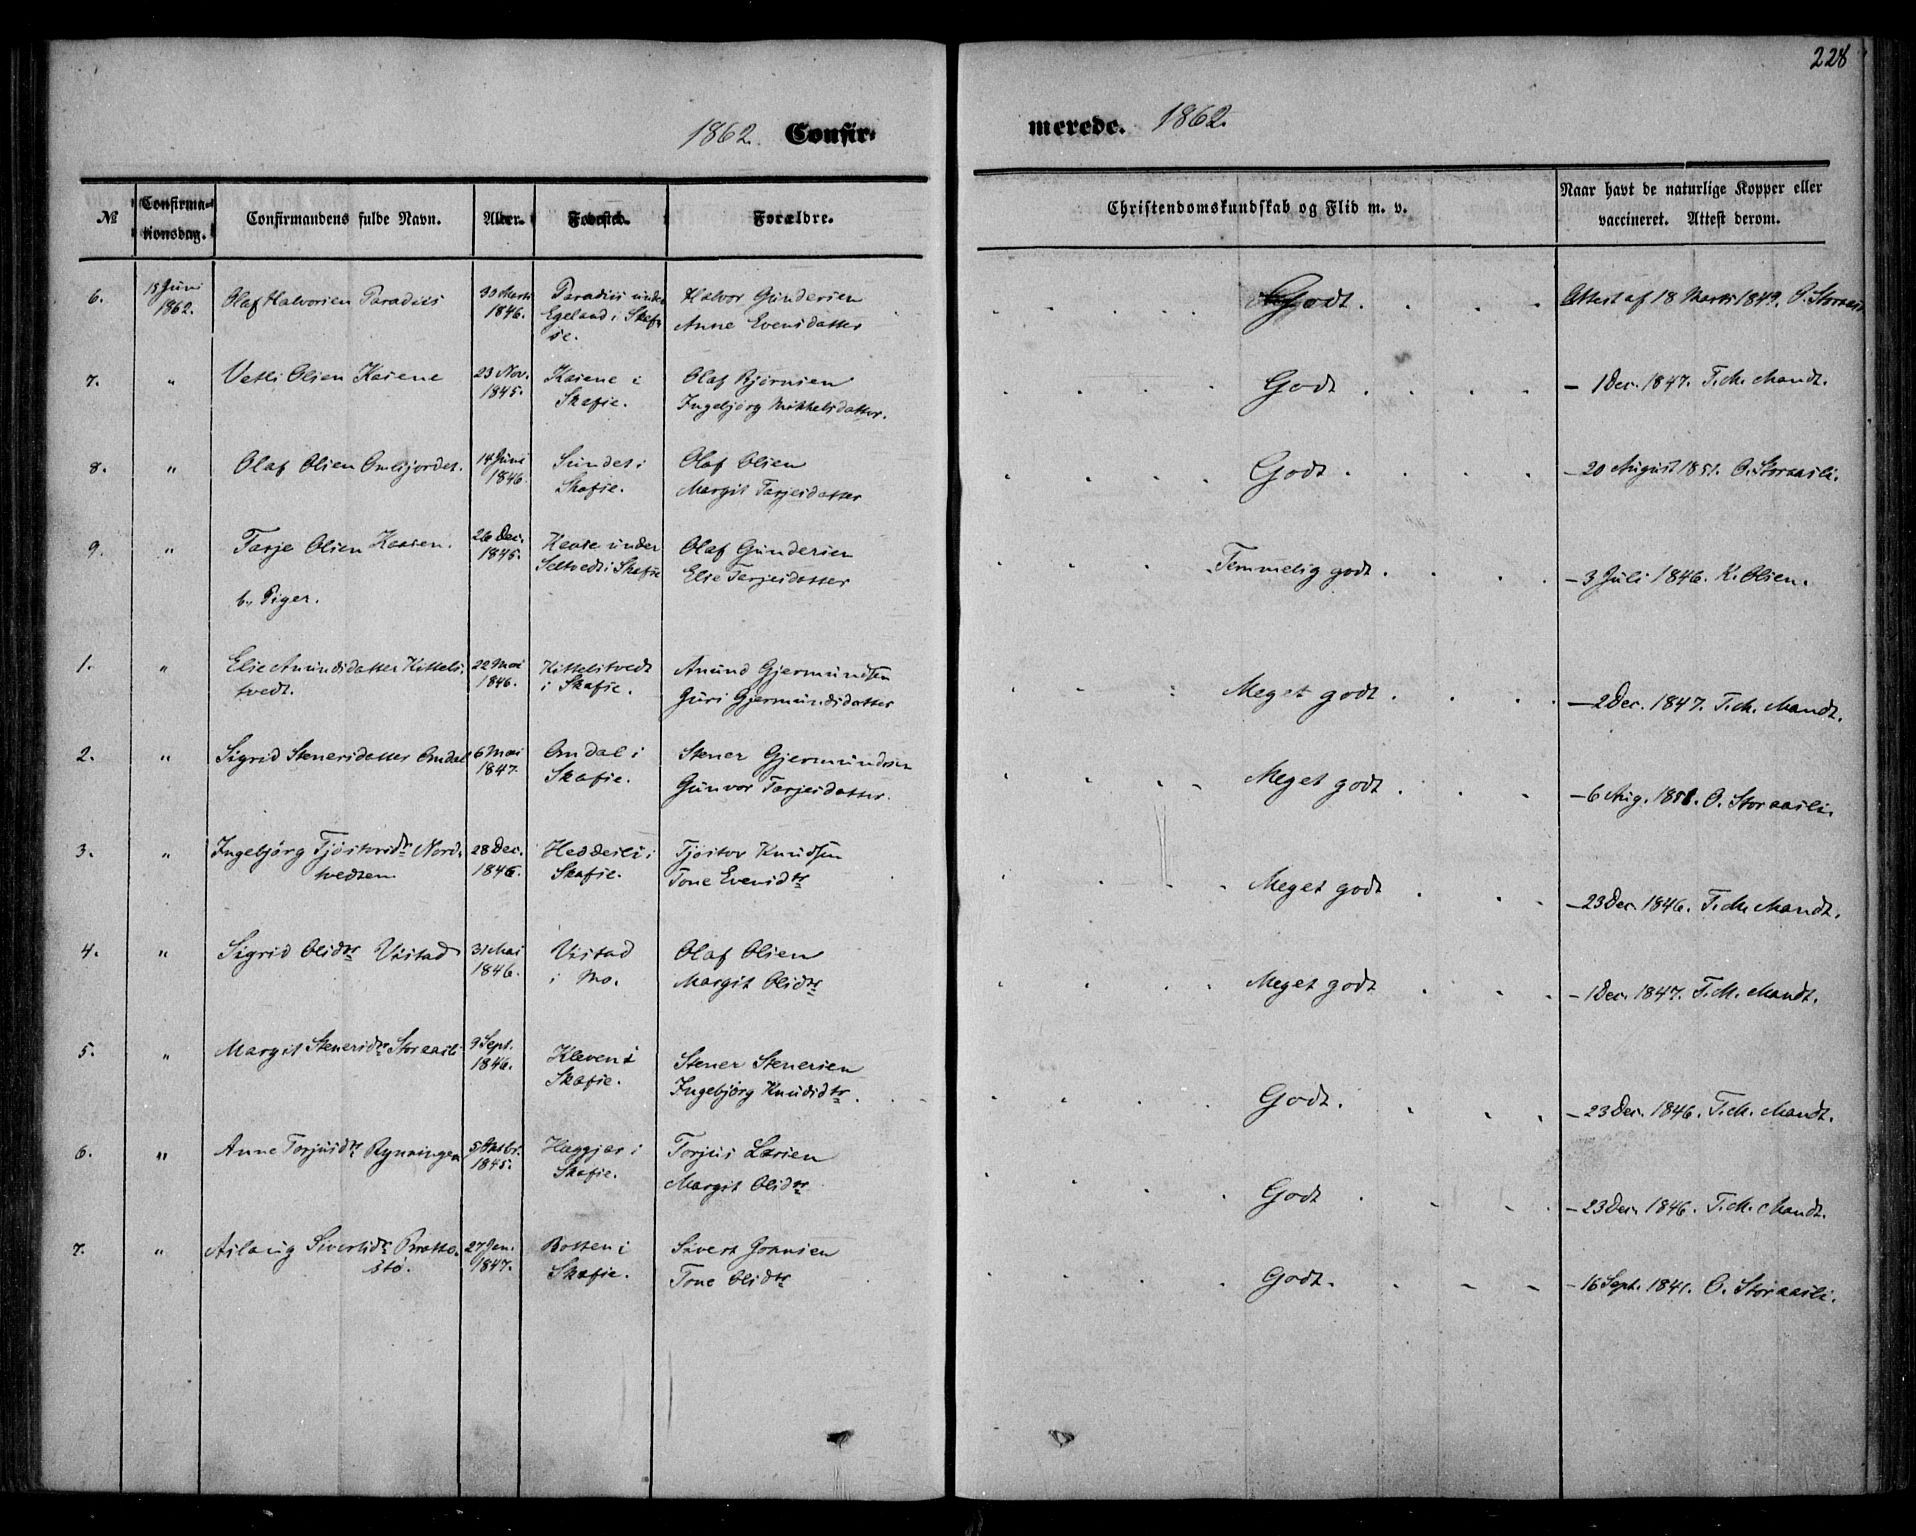 228
1862. Confir-
merede. 1862.
№ Confirma-tionsdag. Confirmandens fulde Navn. Alder. Fødested. Forældre. Christendomskundskab og Flid m. v. Naar havt de naturlige Kopper eller vaccineret. Attest derom.
6. 15 Juni 1862. Olaf Halvorsen Paradiis 30 Marts 1846. Paradiis under Egeland i Skafse. Halvor Gundersen Anne Evensdatter Godt. Attest af 18 Marts 1849. O. Storaasli
7. " Vetli Olsen Kasene 23 Nov. 1845. Kasene i Skafse. Olaf Bjørnsen Ingebjørg Mikkelsdatter. Godt - 1 Dec. 1847. T. M. Mandt.
8. " Olaf Olsen Omlijordet. 14 Juni 1846. Sundet i Skafse. Olaf Olsen Margit Tarjeisdatter Godt. - 20 August 1851. O. Storaasli.
9. " Tarje Olsen Kaasen. 26 Dec. 1845. Kaase under Seltvedt i Skafse Olaf Gundersen Else Tarjeisdatter Temmelig godt. - 3 Juli 1846. K. Olsen.
b. Piger.
1. " Else Amundsdatter Kittelstvedt. 22 Mai 1846. Kittelstvedt i Skafse. Amund Gjermundsen Guri Gjermundsdatter Meget godt. - 2 Dec. 1847. T. M. Mandt.
2. " Sigrid Stenersdatter Omdal 6 Mai 1847. Omdal i Skafse. Stener Gjermundsen Gunvor Tarjeisdatter. Meget godt. - 6 Aug. 1851. O. Storaasli.
3. " Ingebjørg Tjøstovsdr. Nordtvedten 28 Dec. 1846. Heddeili i Skafse. Tjøstov Knudsen Tone Evensdtr Meget godt - 23 Dec. 1846. T. M. Mandt.
4. " Sigrid Olsdtr Vistad 31 Mai 1846. Vistad i Mo. Olaf Olsen Margit Olsdtr Meget godt - 1 Dec. 1847. T. M. Mandt.
5. " Margit Stenersdtr Storaasli 9 Sept. 1846. Kleven i Skafse. Stener Stenersen Ingebjørg Knudsdtr. Godt. - 23 Dec. 1846. T. M. Mandt.
6. " Anne Torjusdtr Rynningen 5 Oktbr. 1845. Haggjer i Skafse. Torjus Larsen Margit Olsdtr Godt - 23 Dec. 1846. T. M. Mandt.
7. " Aslaug Sivertsdr. Brattestø. 27 Jan. 1847. Botten i Skafse. Sivert Gonnsen Tone Olsdtr Godt. - 16 Sept. 1841. O. Storaasli.